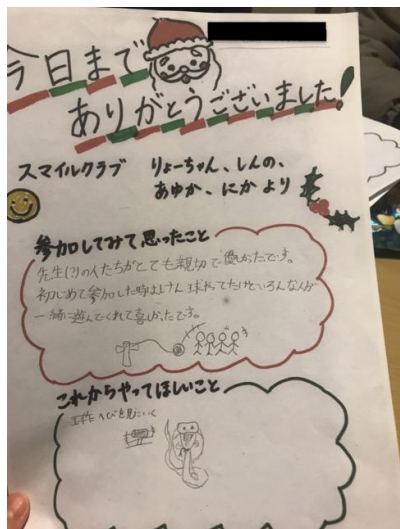 今日まで
ありがとうございました!
スマイルクラブ りょーちゃん、しんの、
あゆか、にか より
参加してみて思ったこと
先生(?)の人たちがとても親切で優しかったです。
初めて参加した時はけん球やってたけどいろんな人が
一緒に遊んでくれて喜しかったです。
これからやってほしいこと
工作 へびを見にいく